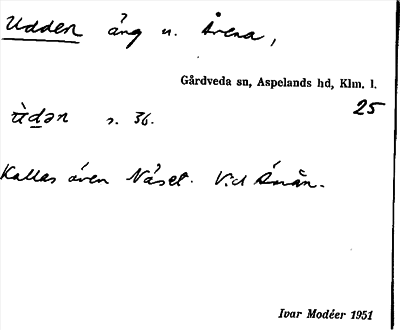 Udden äng u. Årena,
Gårdveda sn, Aspelands hd, Klm. l.
25
ùdən s. 36.
Kallas även Näset. Vid Ånån.
Ivar Modéer 1951